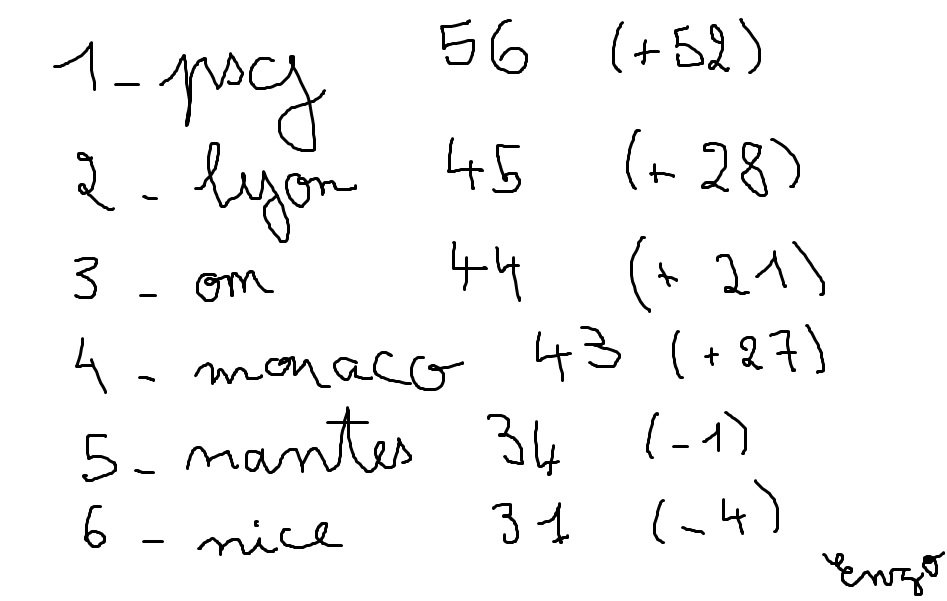 1 - psg 56 (+52)
2 - lyon 45 (+ 28)
3 - om 44 (+ 21)
4 - monaco 43 (+27)
5 - nantes 34 (-1)
6 - nice 31 (-4)
enzo